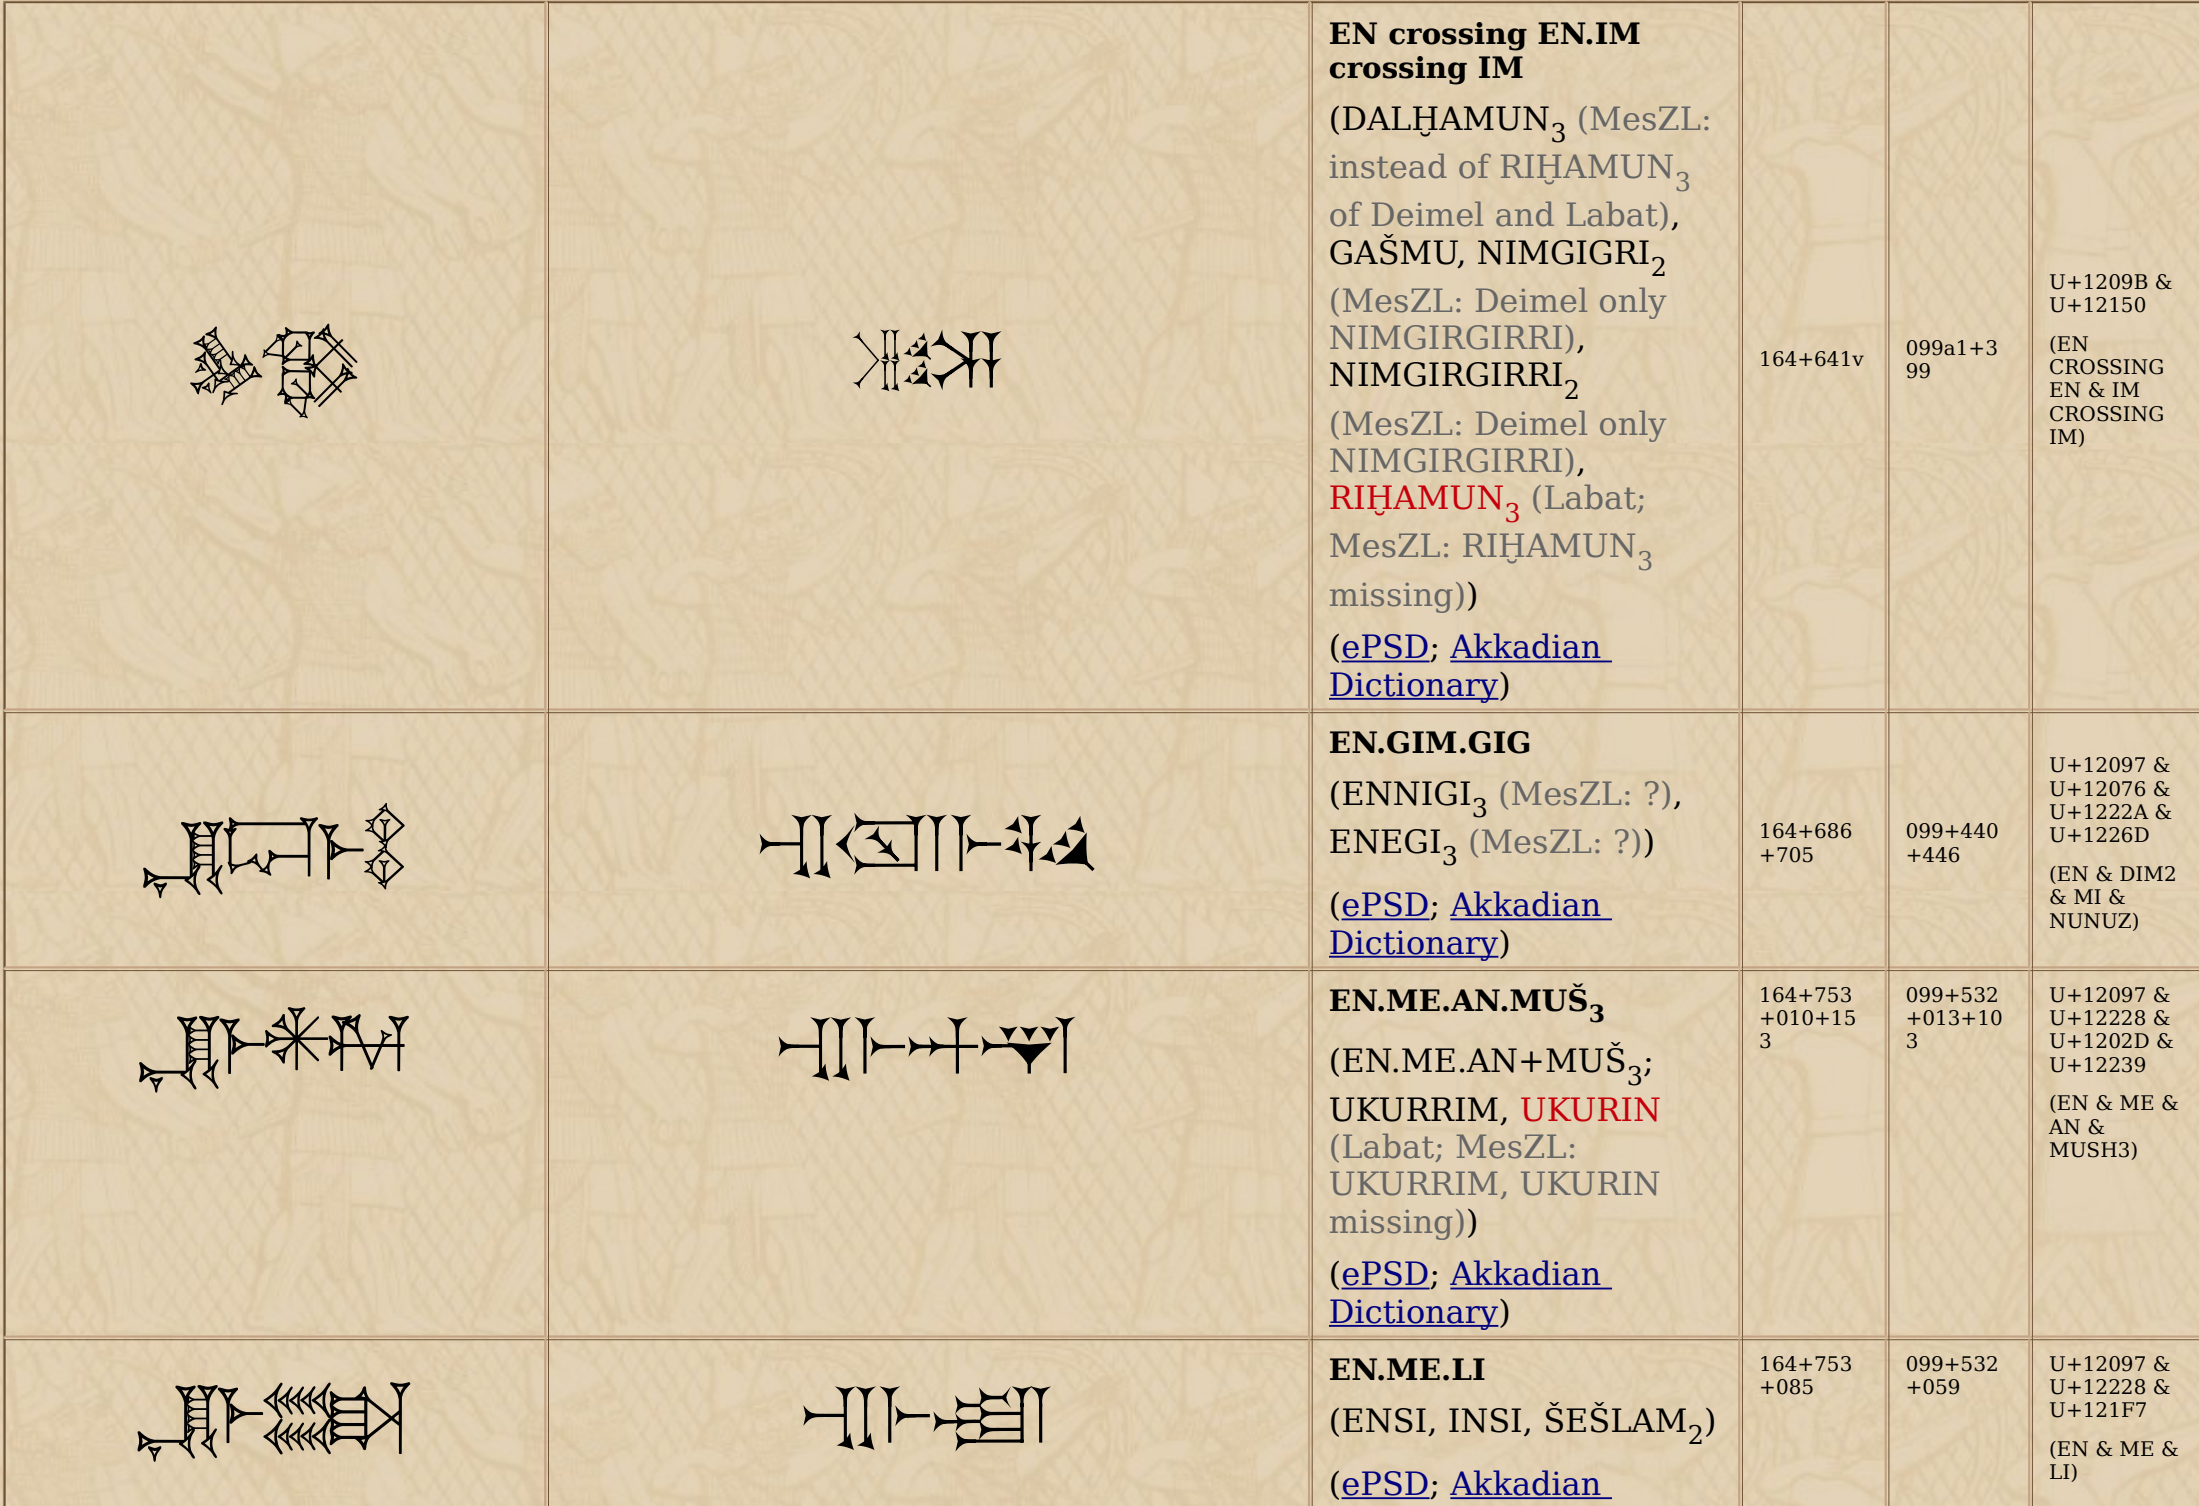 𒂛𒅐
EN crossing EN.IM
crossing IM
(DALḪAMUN₃ (MesZL:
instead of RIḪAMUN₃
of Deimel and Labat),
GAŠMU, NIMGIGRI₂
(MesZL: Deimel only
NIMGIRGIRRI),
NIMGIRGIRRI₂
(MesZL: Deimel only
NIMGIRGIRRI),
RIḪAMUN₃ (Labat;
MesZL: RIḪAMUN₃
missing))
(ePSD; Akkadian
Dictionary)
164+641v
099a1+3
99
U+1209B &
U+12150
(EN
CROSSING
EN & IM
CROSSING
IM)
𒂗𒁶𒈪𒉭
𒂗𒁶𒈪𒉭
EN.GIM.GIG
(ENNIGI₃ (MesZL: ?),
ENEGI₃ (MesZL: ?))
(ePSD; Akkadian
Dictionary)
164+686
+705
099+440
+446
U+12097 &
U+12076 &
U+1222A &
U+1226D
(EN & DIM2
& MI &
NUNUZ)
𒂗𒈨𒀭𒈹
𒂗𒈨𒀭𒈹
EN.ME.AN.MUŠ₃
(EN.ME.AN+MUŠ₃;
UKURRIM, UKURIN
(Labat; MesZL:
UKURRIM, UKURIN
missing))
(ePSD; Akkadian
Dictionary)
164+753
+010+15
3
099+532
+013+10
3
U+12097 &
U+12228 &
U+1202D &
U+12239
(EN & ME &
AN &
MUSH3)
𒂗𒈨𒇷
𒂗𒈨𒇷
EN.ME.LI
(ENSI, INSI, ŠEŠLAM₂)
(ePSD; Akkadian
164+753
+085
099+532
+059
U+12097 &
U+12228 &
U+121F7
(EN & ME &
LI)